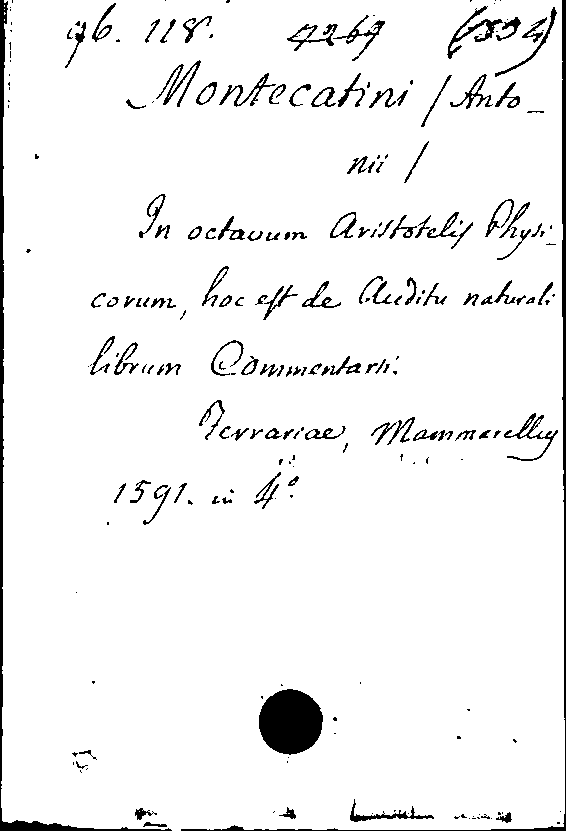 96. 118. 4269 (1334)
Montecatini / Anto_
nii /
In octavum Aristotelis Physi_
corum, hoc est de Auditu naturali
librum Commentarii.
Ferrariae, Mammarellus
1591. in 4º